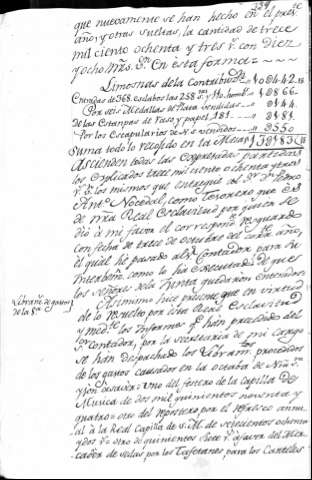 que nuevamente se han hecho en el preste
año, y otras sueltas, la cantidad de trece
mil ciento ochenta y tres rs. con diez
y ocho Mrs. Vn. En esta forma
Limosnas de la Contribucn. 10442.18
Entradas de 368 esclabos las 258 10866
Por seis Medallas de Plata vendidas 0144
de las Estampas de Raso y papel 181 0181
Por los Escapularios de Ns. vendidos 3550
Suma todo lo recojido en la Mesa 13183 18
Ascienden todas las expresadas partidas
los explicados trece mil ciento ochenta y tres
rs. Vn. los mismos que entregué al Sr. Dn.
Anto. Nocedal, como Tesorero que es
de nra Real Esclavitud por quien se
dió á mi favor el correspondte. resguardo
con fecha de trece de octubre del año,
el qual hé pasado al Sr. Contador para su
Interbenn. como lo há executado de que
los Señores de la Junta quedarón Enterados
Librams. de gastos
de la Rl.
Asimismo hice presente, que en virtud
de lo resuelto por Real Esclavitud
y medte. los Informes qe. hán precedido del
Sr. Contador, por la Secretaria de mi cargo
se hán despachado los Libramtos. procedidos
de los gastos causados en la octaba de Nra. Sra.
y son á saver: Uno del festero de la Capilla de
Musica de dos mil quinientos noventa y
quatro: otro del Monstero por el refresco annu-
al á la Real Capilla de S. M. de seiscientos ochenta
y dos rs. otro de quinientos siete rs. á favor del Mer-
cader de sedas por los Tafetanes para los Carteles